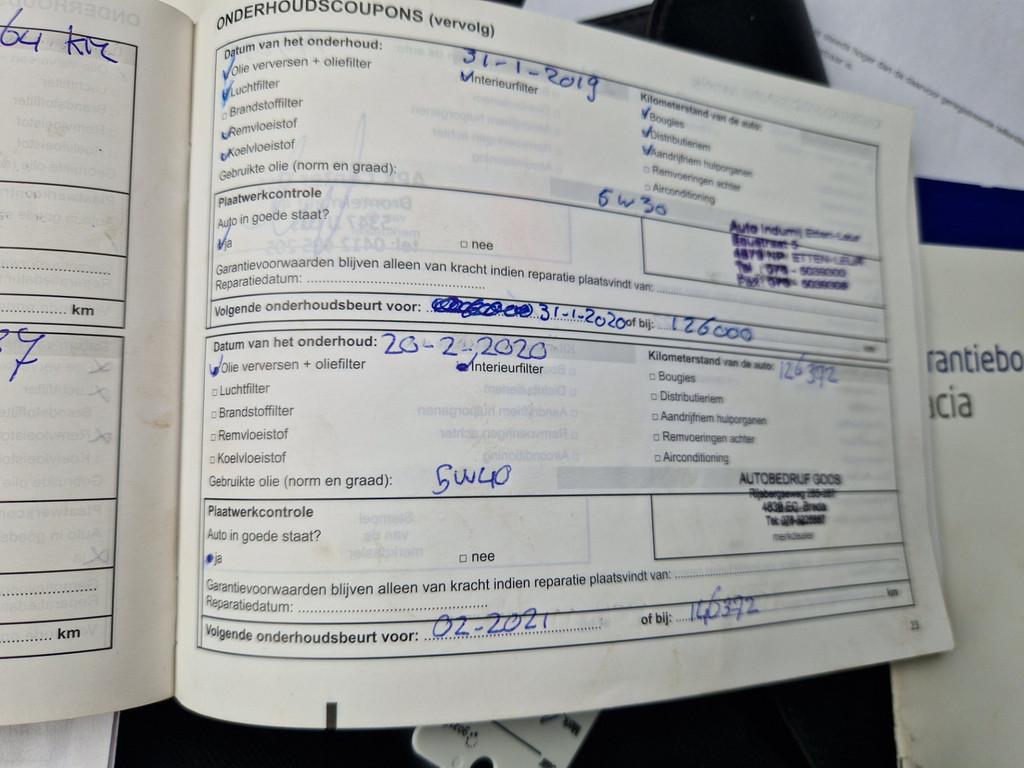 64 km
km
37
km
ONDERHOUDSCOUPONS (vervolg)
Datum van het onderhoud: 31-1-2019
Olie verversen + oliefilter
Interieurfilter
Kilometerstand van de auto:
Luchtfilter
Bougies
Brandstoffilter
Distributieriem
Remvloeistof
Aandrijfriem hulporganen
Koelvloeistof
Remvoeringen achter
Gebruikte olie (norm en graad): 5W30
Airconditioning
Plaatwerkcontrole
Auto in goede staat?
ja
nee
Auto Indumij Etten-Leur
ETTEN-LEUR
Garantievoorwaarden blijven alleen van kracht indien reparatie plaatsvindt van:
Reparatiedatum:
Volgende onderhoudsbeurt voor: 31-1-2020 of bij: 126000
Datum van het onderhoud: 20-2-2020
Kilometerstand van de auto: 126372
Olie verversen + oliefilter
Interieurfilter
Bougies
Luchtfilter
Distributieriem
Brandstoffilter
Aandrijfriem hulporganen
Remvloeistof
Remvoeringen achter
Koelvloeistof
Airconditioning
Gebruikte olie (norm en graad): 5W40
AUTOBEDRIJF GOOS
Breda
merkdealer
Plaatwerkcontrole
Auto in goede staat?
ja
nee
Garantievoorwaarden blijven alleen van kracht indien reparatie plaatsvindt van:
Reparatiedatum:
km
Volgende onderhoudsbeurt voor: 02-2021 of bij: 146372
23
rantiebo
acia